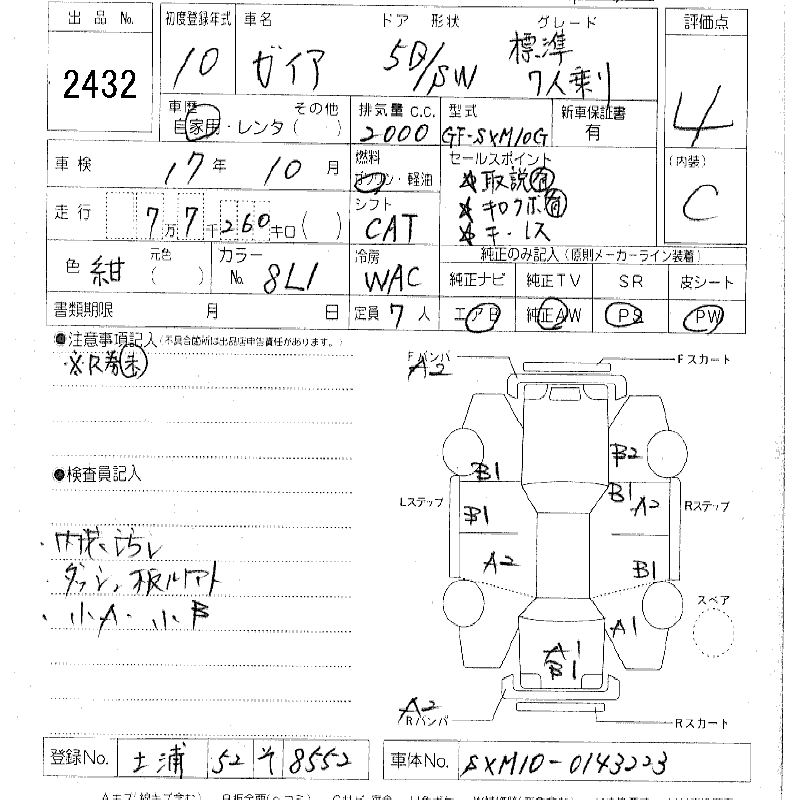 出品 No.
2432
初度登録年式
10
車名
ガイア
ドア 形状
5D/SW
グレード
標準
7人乗り
評価点
4
車歴 その他
自家用・レンタ( )
排気量 C.C.
2000
型式
GF-SXM10G
新車保証書
有
車検 17年 10月
燃料
ガソリン・軽油
セールスポイント
取説有
キロクボ有
キーレス
(内装)
C
走行 7万7千260キロ( )
シフト
CAT
色 紺 元色( )
カラーNo. 8L1
冷房
WAC
純正のみ記入(原則メーカーライン装着)
純正ナビ 純正TV SR 皮シート
書類期限 月 日
定員 7人
エアB 純正AW PS PW
●注意事項記入(不具合箇所は出品店申告責任があります。)
※R券未
●検査員記入
内装汚れ
小A・小B
Fバンパ
A2
Fスカート
B1
B2
Lステップ
B1
B1
A2
Rステップ
A2
B1
スペア
A1
A1
B1
A2
Rバンパ
Rスカート
登録No. 土浦 52 そ 8552
車体No. SXM10-0143223